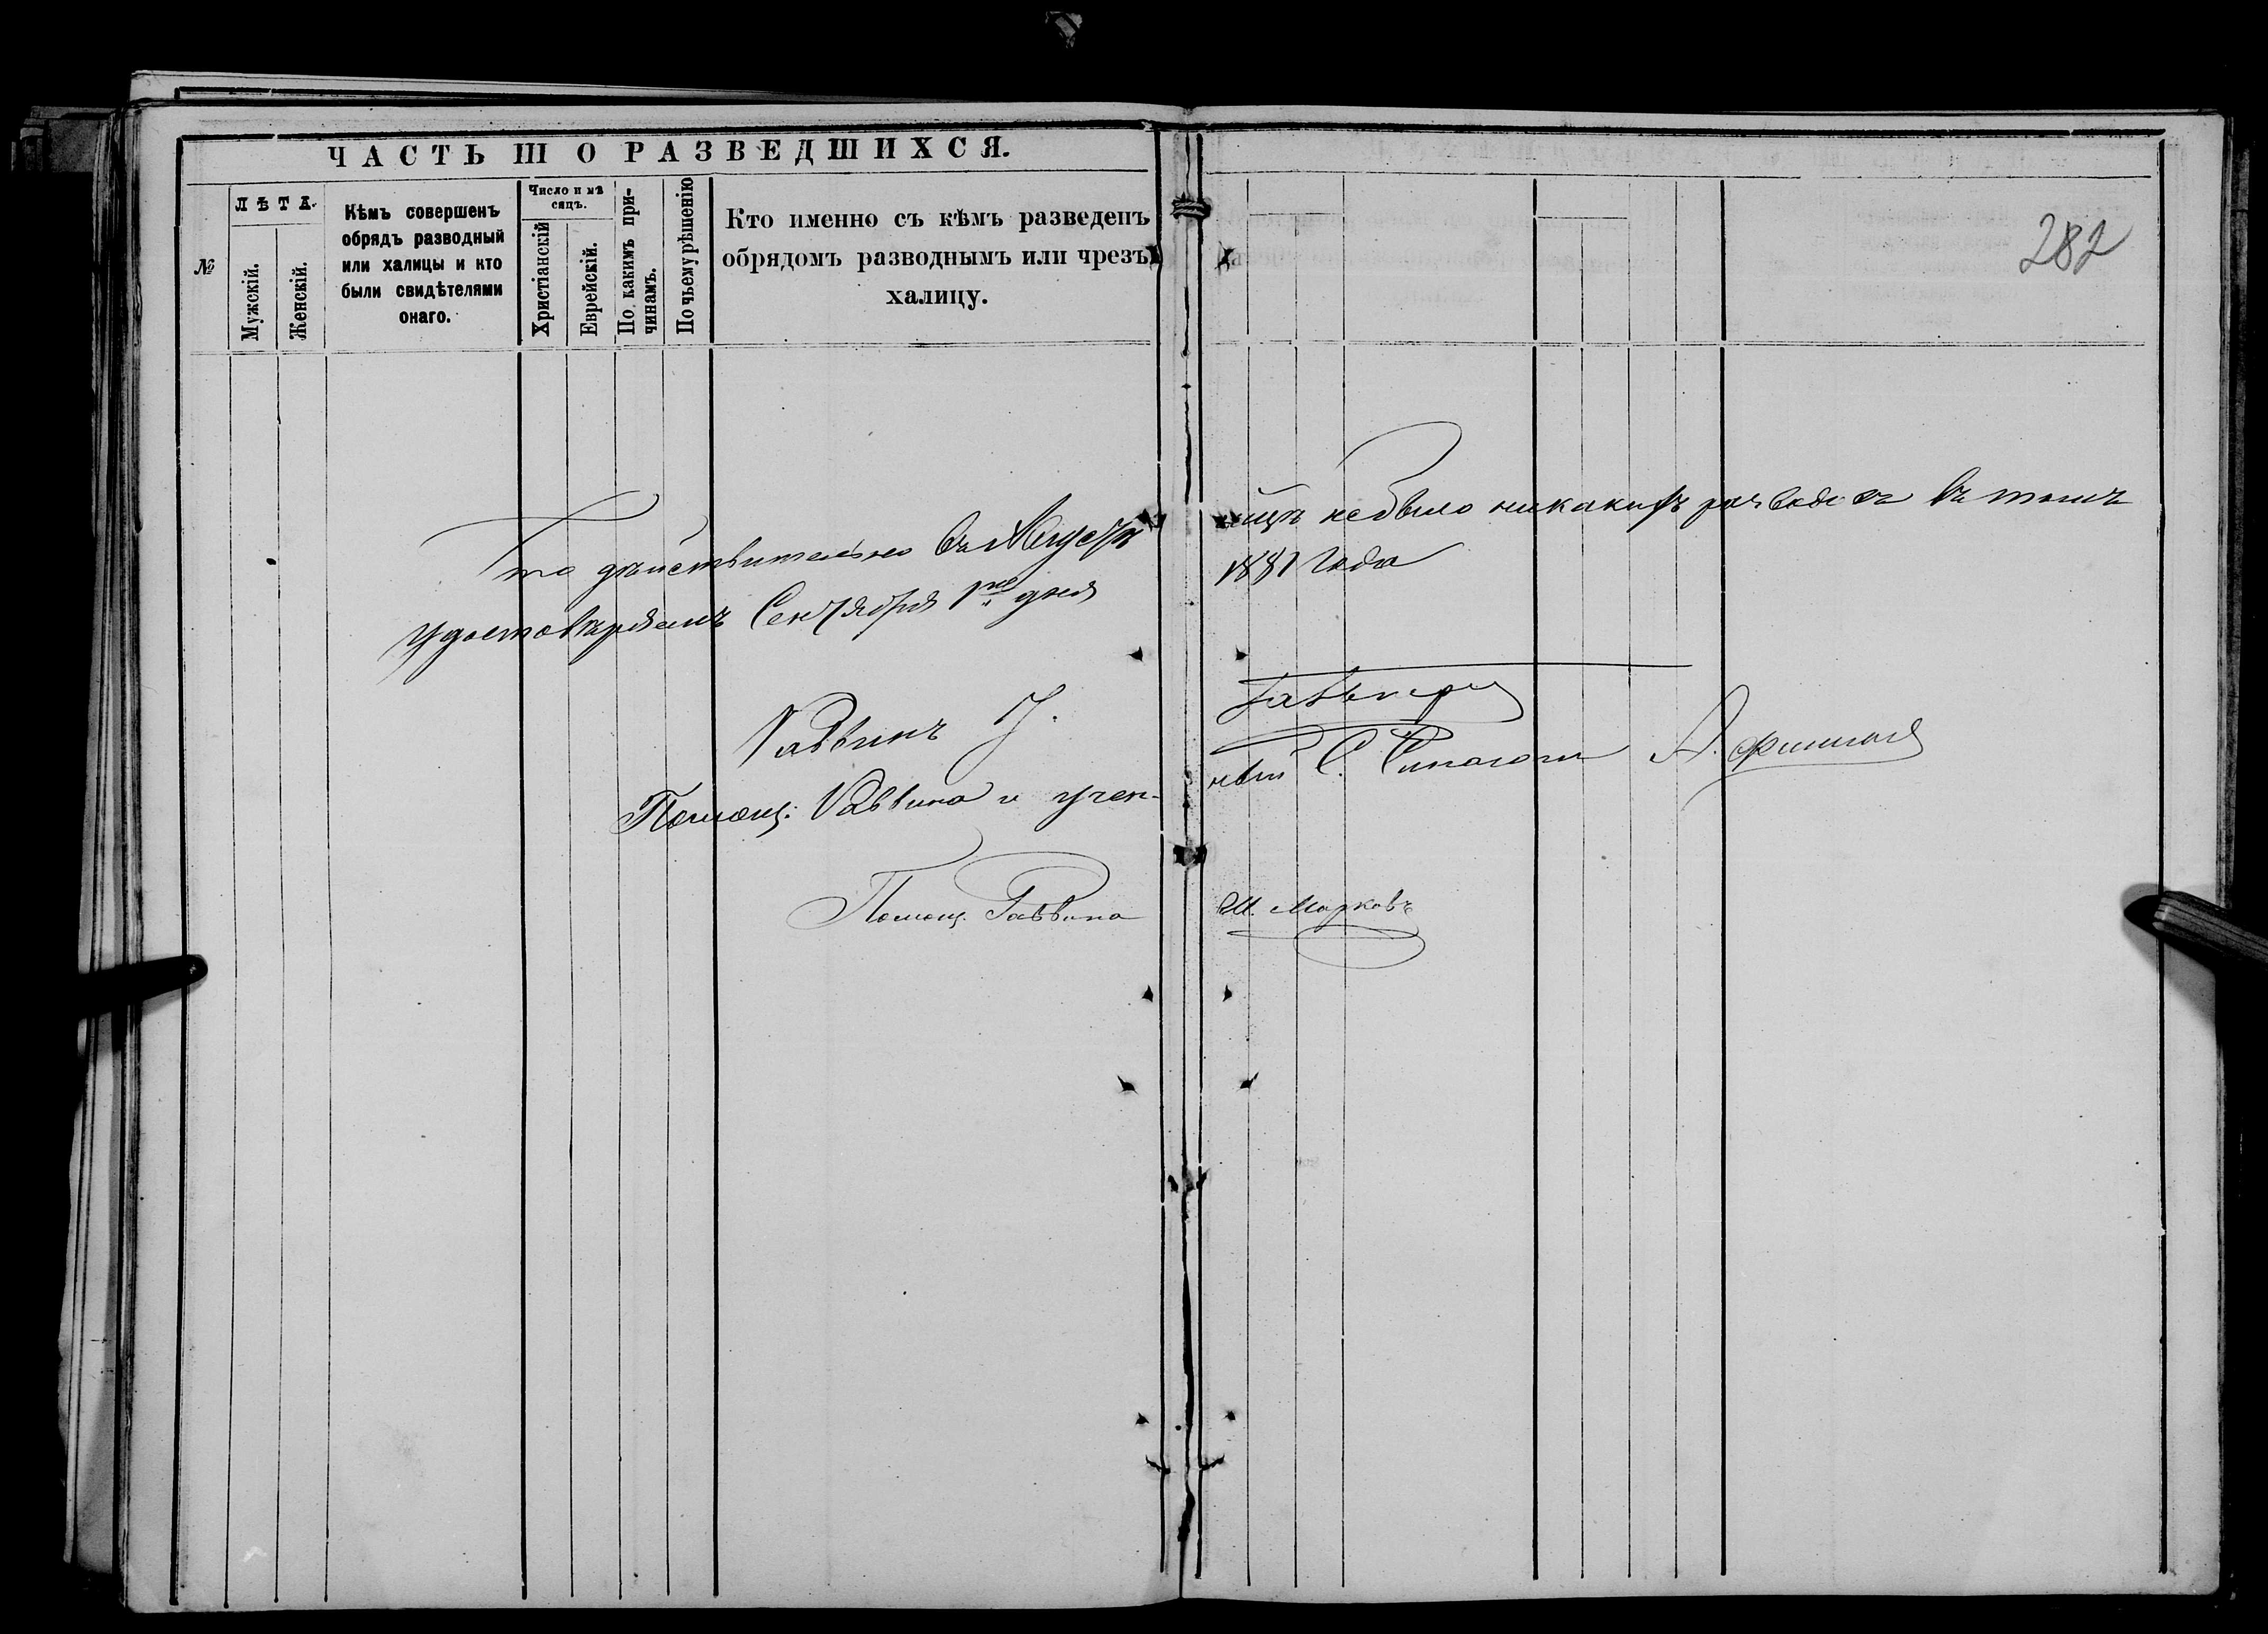 ЧАСТЬ III О РАЗВЕДШИХСЯ.
№
ЛѢТА.
Мужскій.
Женскій.
Кѣмъ совершенъ
обрядъ разводный
или халицы и кто
были свидѣтелями
онаго.
Число и мѣ
сяцъ.
Христіанскій
Еврейскій.
По какимъ при-
чинамъ.
По чьему рѣшенію
Кто именно съ кѣмъ разведенъ
обрядомъ разводнымъ или чрезъ
халицу.
282
Что дѣйствительно въ Августѣ не было никакихъ разводовъ въ томъ
удостовѣряемъ Сентября 1го дня 1881 года
Раввинъ
Помощ. Раввина и учен-
ный С. Синагоги А.
Помощ. Раввина М. Марковъ